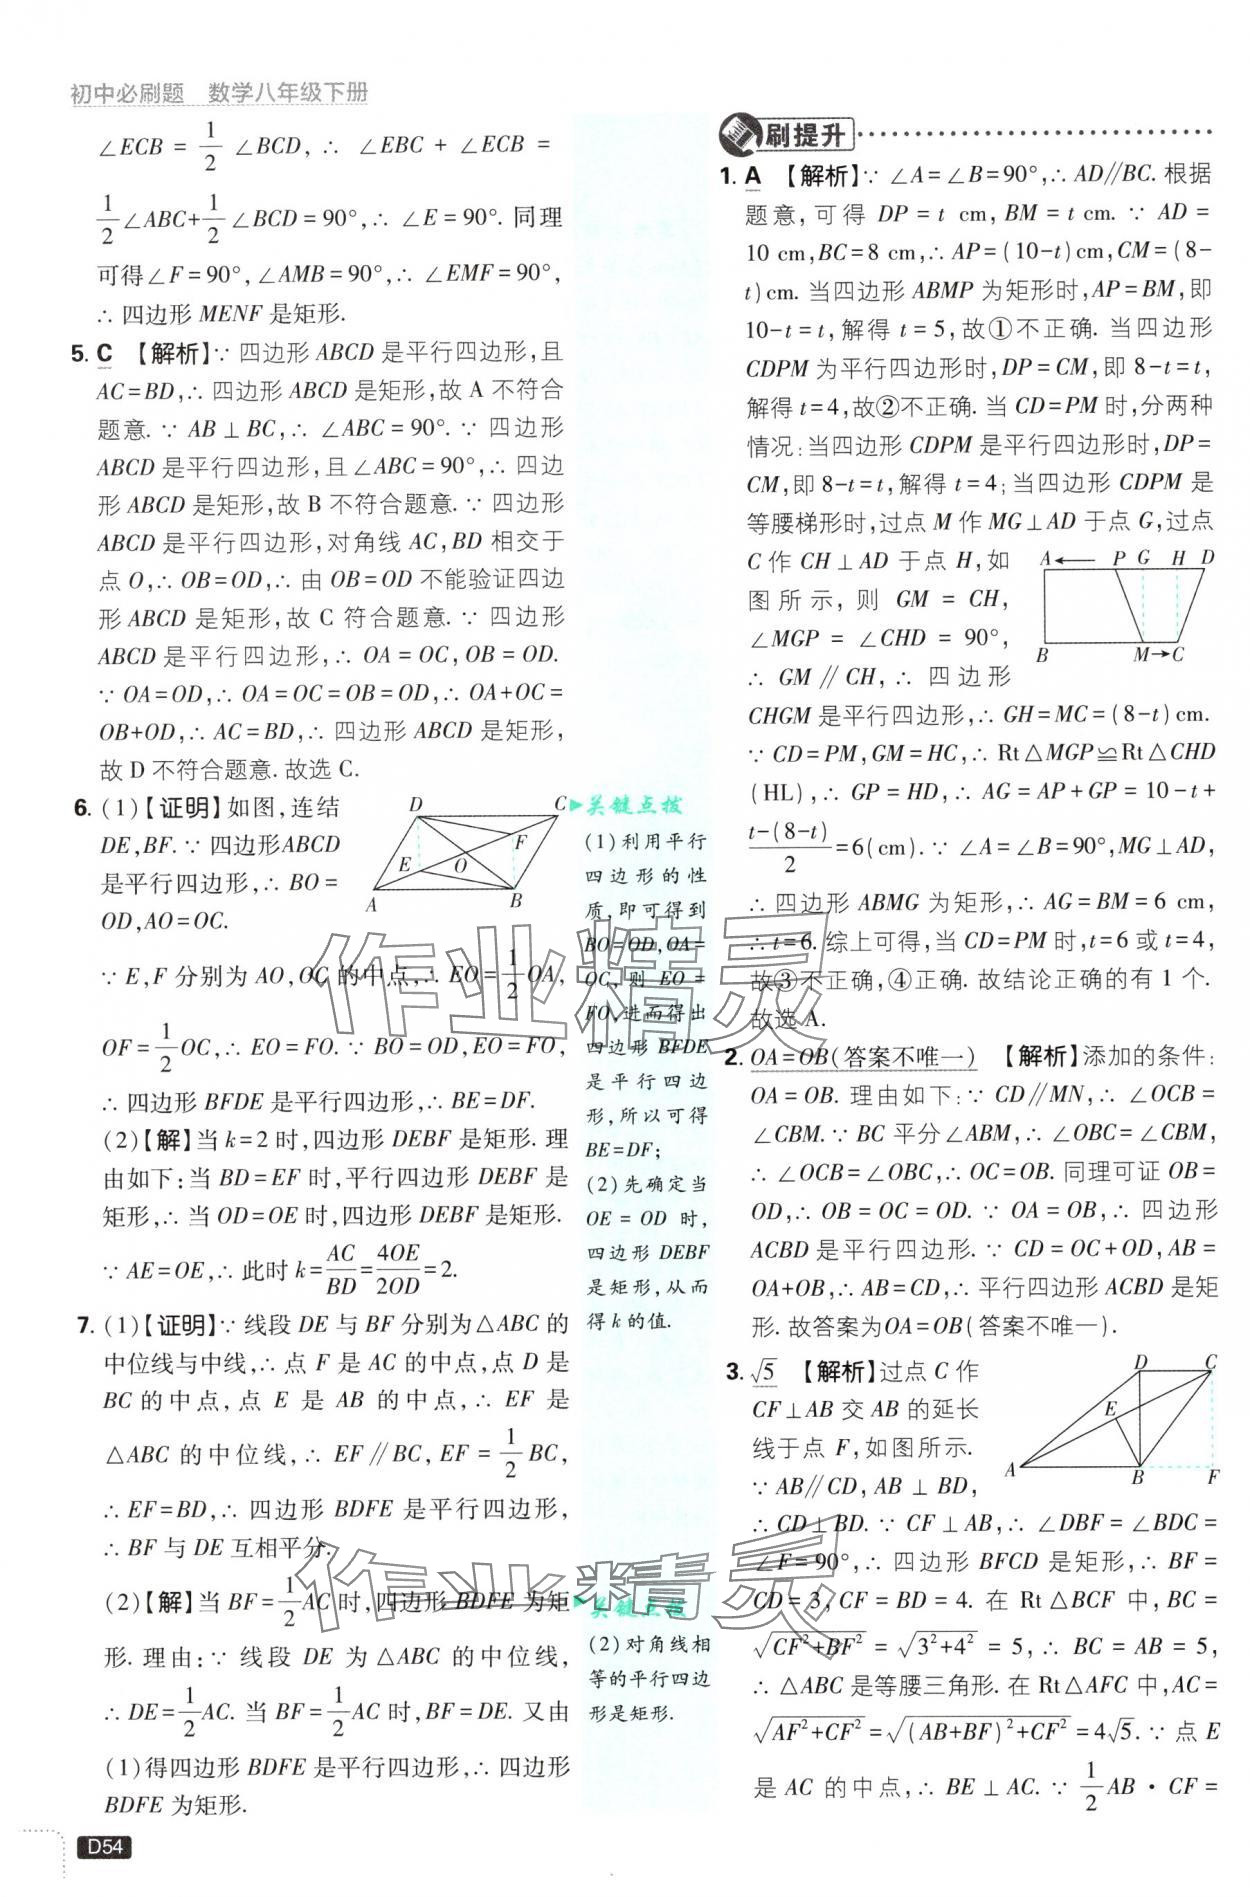 初中必刷题 数学八年级下册
∠ECB = 1/2 ∠BCD, ∴ ∠EBC + ∠ECB =
1/2∠ABC+1/2∠BCD=90°,∴ ∠E=90°. 同理
可得∠F=90°,∠AMB=90°,∴ ∠EMF=90°,
∴ 四边形 MENF 是矩形.
5. C 【解析】∵ 四边形 ABCD 是平行四边形,且
AC=BD,∴ 四边形 ABCD 是矩形,故 A 不符合
题意. ∵ AB⊥BC,∴ ∠ABC=90°. ∵ 四边形
ABCD 是平行四边形,且∠ABC=90°,∴ 四边
形 ABCD 是矩形,故 B 不符合题意. ∵ 四边形
ABCD 是平行四边形,对角线 AC,BD 相交于
点 O,∴ OB=OD,∴ 由 OB=OD 不能验证四边
形 ABCD 是矩形,故 C 符合题意. ∵ 四边形
ABCD 是平行四边形,∴ OA=OC,OB=OD.
∵ OA=OD,∴ OA=OC=OB=OD,∴ OA+OC=
OB+OD,∴ AC=BD,∴ 四边形 ABCD 是矩形,
故 D 不符合题意. 故选 C.
6. (1)【证明】如图,连结
DE,BF. ∵ 四边形ABCD
是平行四边形,∴ BO=
OD,AO=OC.
D C
E F
O
A B
∵ E,F 分别为 AO,OC 的中点,∴ EO=1/2OA,
OF=1/2OC,∴ EO=FO. ∵ BO=OD,EO=FO,
∴ 四边形 BFDE 是平行四边形,∴ BE=DF.
(2)【解】当 k=2 时,四边形 DEBF 是矩形. 理
由如下:当 BD=EF 时,平行四边形 DEBF 是
矩形,∴ 当 OD=OE 时,四边形 DEBF 是矩形.
∵ AE=OE,∴ 此时 k=AC/BD=4OE/2OD=2.
7. (1)【证明】∵ 线段 DE 与 BF 分别为△ABC 的
中位线与中线,∴ 点 F 是 AC 的中点,点 D 是
BC 的中点,点 E 是 AB 的中点,∴ EF 是
△ABC 的中位线,∴ EF∥BC,EF=1/2BC,
∴ EF=BD,∴ 四边形 BDFE 是平行四边形,
∴ BF 与 DE 互相平分.
(2)【解】当 BF=1/2AC 时,四边形 BDFE 为矩
形. 理由:∵ 线段 DE 为△ABC 的中位线,
∴ DE=1/2AC. 当 BF=1/2AC 时,BF=DE. 又由
(1)得四边形 BDFE 是平行四边形,∴ 四边形
BDFE 为矩形.
D54
关键点拨
(1)利用平行
四边形的性
质,即可得到
BO=OD,OA=
OC,则 EO=
FO,进而得出
四边形 BFDE
是平行四边
形,所以可得
BE=DF;
(2)先确定当
OE=OD 时,
四边形 DEBF
是矩形,从而
得 k 的值.
关键点拨
(2)对角线相
等的平行四边
形是矩形.
刷提升
1. A 【解析】∵ ∠A=∠B=90°,∴ AD∥BC. 根据
题意,可得 DP=t cm,BM=t cm. ∵ AD=
10 cm,BC=8 cm,∴ AP=(10-t)cm,CM=(8-
t)cm. 当四边形 ABMP 为矩形时,AP=BM,即
10-t=t,解得 t=5,故①不正确. 当四边形
CDPM 为平行四边形时,DP=CM,即 8-t=t,
解得 t=4,故②不正确. 当 CD=PM 时,分两种
情况:当四边形 CDPM 是平行四边形时,DP=
CM,即 8-t=t,解得 t=4;当四边形 CDPM 是
等腰梯形时,过点 M 作 MG⊥AD 于点 G,过点
C 作 CH⊥AD 于点 H,如
图所示,则 GM=CH,
∠MGP=∠CHD=90°,
∴ GM∥CH,∴ 四边形
A P G H D
B M→C
CHGM 是平行四边形,∴ GH=MC=(8-t)cm.
∵ CD=PM,GM=HC,∴ Rt△MGP≌Rt△CHD
(HL),∴ GP=HD,∴ AG=AP+GP=10-t+
t-(8-t)/2=6(cm). ∵ ∠A=∠B=90°,MG⊥AD,
∴ 四边形 ABMG 为矩形,∴ AG=BM=6 cm,
∴ t=6. 综上可得,当 CD=PM 时,t=6 或 t=4,
故③不正确,④正确. 故结论正确的有 1 个.
故选 A.
2. OA=OB(答案不唯一) 【解析】添加的条件:
OA=OB. 理由如下:∵ CD∥MN,∴ ∠OCB=
∠CBM. ∵ BC 平分∠ABM,∴ ∠OBC=∠CBM,
∴ ∠OCB=∠OBC,∴ OC=OB. 同理可证 OB=
OD,∴ OB=OC=OD. ∵ OA=OB,∴ 四边形
ACBD 是平行四边形. ∵ CD=OC+OD,AB=
OA+OB,∴ AB=CD,∴ 平行四边形 ACBD 是矩
形. 故答案为OA=OB(答案不唯一).
3. √5 【解析】过点 C 作
CF⊥AB 交 AB 的延长
线于点 F,如图所示.
∵ AB∥CD,AB⊥BD,
D C
E
A B F
∴ CD⊥BD. ∵ CF⊥AB,∴ ∠DBF=∠BDC=
∠F=90°,∴ 四边形 BFCD 是矩形,∴ BF=
CD=3,CF=BD=4. 在 Rt△BCF 中,BC=
√(CF²+BF²)=√(3²+4²)=5,∴ BC=AB=5,
∴ △ABC 是等腰三角形. 在 Rt△AFC 中,AC=
√(AF²+CF²)=√((AB+BF)²+CF²)=4√5. ∵ 点 E
是 AC 的中点,∴ BE⊥AC. ∵ 1/2AB·CF=
作业精灵
作业精灵